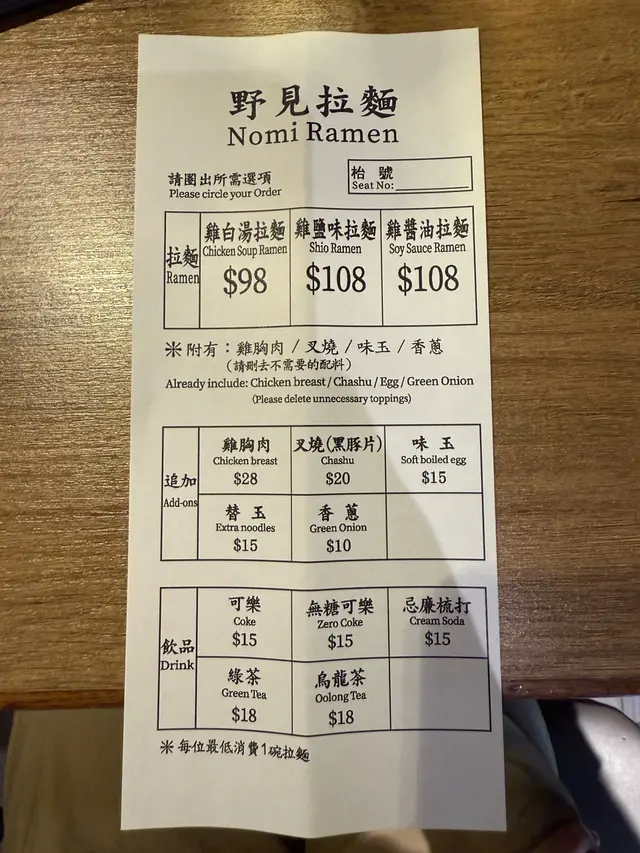 野見拉麵
Nomi Ramen
請圈出所需選項
Please circle your Order
枱號
Seat No:
拉麵
Ramen
雞白湯拉麵
Chicken Soup Ramen
$98
雞鹽味拉麵
Shio Ramen
$108
雞醬油拉麵
Soy Sauce Ramen
$108
※附有：雞胸肉 / 叉燒 / 味玉 / 香蔥
（請刪去不需要的配料）
Already include: Chicken breast / Chashu / Egg / Green Onion
(Please delete unnecessary toppings)
追加
Add-ons
雞胸肉
Chicken breast
$28
叉燒(黑豚片)
Chashu
$20
味玉
Soft boiled egg
$15
替玉
Extra noodles
$15
香蔥
Green Onion
$10
飲品
Drink
可樂
Coke
$15
無糖可樂
Zero Coke
$15
忌廉梳打
Cream Soda
$15
綠茶
Green Tea
$18
烏龍茶
Oolong Tea
$18
※每位最低消費1碗拉麵